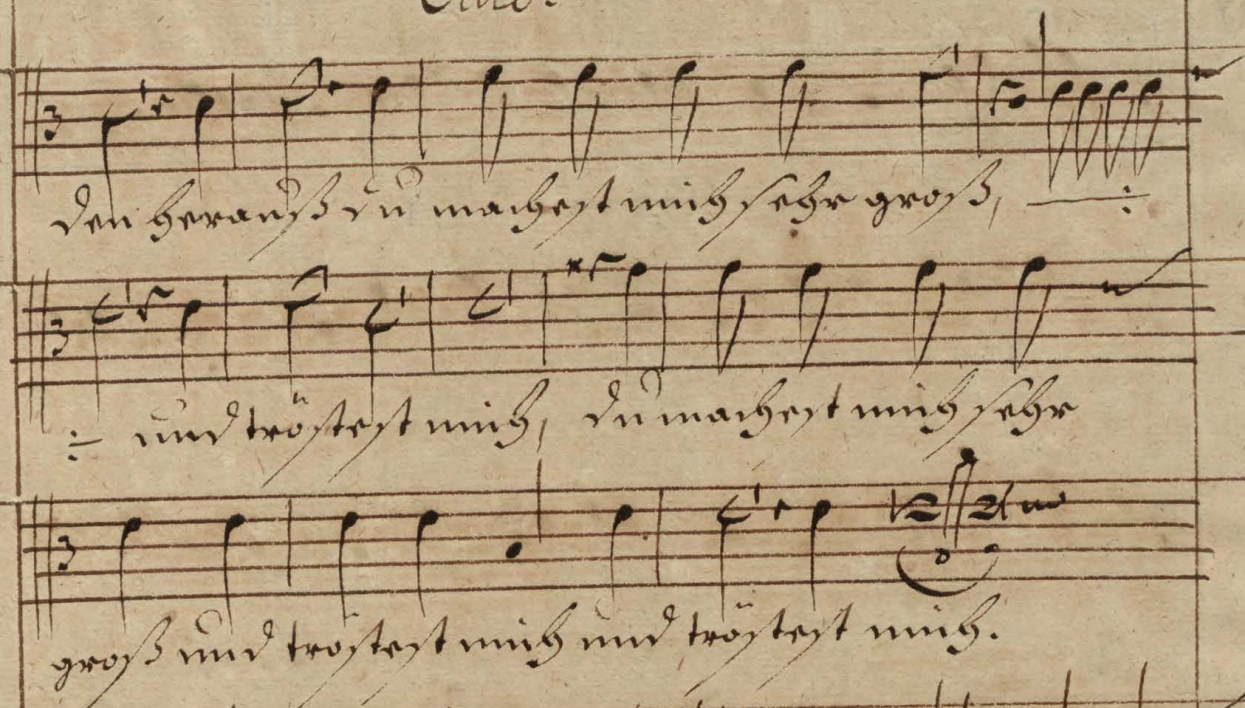 den herauß du machest mich sehr groß,
und tröstest mich, du machest mich sehr
groß und tröstest mich und tröstest mich.